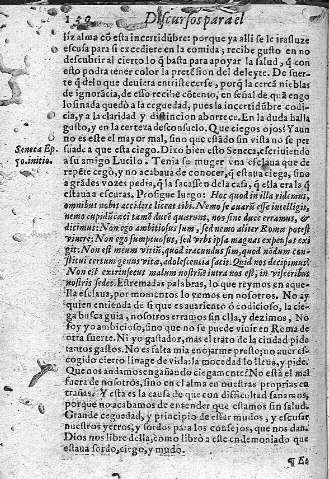 150 Discursos para el
liz alma cõ esta incertidũbre: porque ya alli se le trasluze
escusa para si excediere en la comida; recibe gusto en no
descubrir al cierto lo q̃ basta para apoyar la salud, q̃ con
esto podra tener color la pretẽsion del deleyte. De suer-
te q̃ delo que deuiera entristecerse, porq̃ la cerca nieblas
de ignorãcia, de esso recibe cõtento, en señal de q̃ a engo
losinada quedò a la ceguedad, pues la incertidũbre codi-
cia, y a la claridad y distincion aborrece. En la duda halla
gusto, y en la certeza desconsuelo. Que ciegos ojos! Y aun
no es este el mayor mal, sino que estãdo sin vista no se per
suade a que esta ciego. Dixo bien esto Seneca, escriuiendo
a su amigo Lucilo. Tenia su muger vna esclaua que de
repẽte cegò, y no acabaua de conocer, q̃ estaua ciega, sino
a grãdes vozes pedia, q̃ la sacassẽ de la casa, q̃ ella era la q̃
estaua a escuras. Prosigue luego: Hoc quod in illa ridemus,
omnibus nobis accidere liceat tibi. Nemo se auarũ esse intelligit,
nemo cupidũ. cæci tamẽ ducẽ quærunt, nos sine duce erramus, &
dicimus: Non ego ambitiosus sum, sed nemo aliter Romæ potest
viuere; Non ego sumptuosus, sed vrbs ipsa magnas expensas exi
git: Non est meum vitiũ, quod iracundus sim, quod nõdum con-
stitui certum genus vitæ, adolescentia facit. Quid nos decipimus?
Non est extrinsecus malum nostrũ: intra nos est, in visceribus
nostris sedet. Estremadas palabras, lo que reymos en aque-
lla esclaua, por momentos lo vemos en nosotros. No ay
quien entienda de si que es auariento, ò codicioso, la cie-
ga busca guia, nosotros erramos sin ella, y dezimos, No
soy yo ambicioso, sino que no se puede viuir en Roma de
otra suerte. Ni yo gastador, mas el trato de la ciudad pide
tantos gastos. No es falta mia enojarme presto, no auer es-
cogido cierto linage de vida, la mocedad lo lleua, y pide.
Que nos andamos engañando ciegamente? No està el mal
fuera de nosotros, sino en el alma en nuestras proprias en
trañas. Y esta es la causa de que con dificultad sanamos,
porque no acabamos de entender que estamos sin salud.
Grande ceguedad, y principio de estar mudos, y escusar
nuestros yerros, y sordos para los consejos, que nos dan.
Dios nos libre della, como librò a este endemoniado que
estaua sordo, ciego, y mudo.
¶ Es
Seneca Ep.
50. initio.